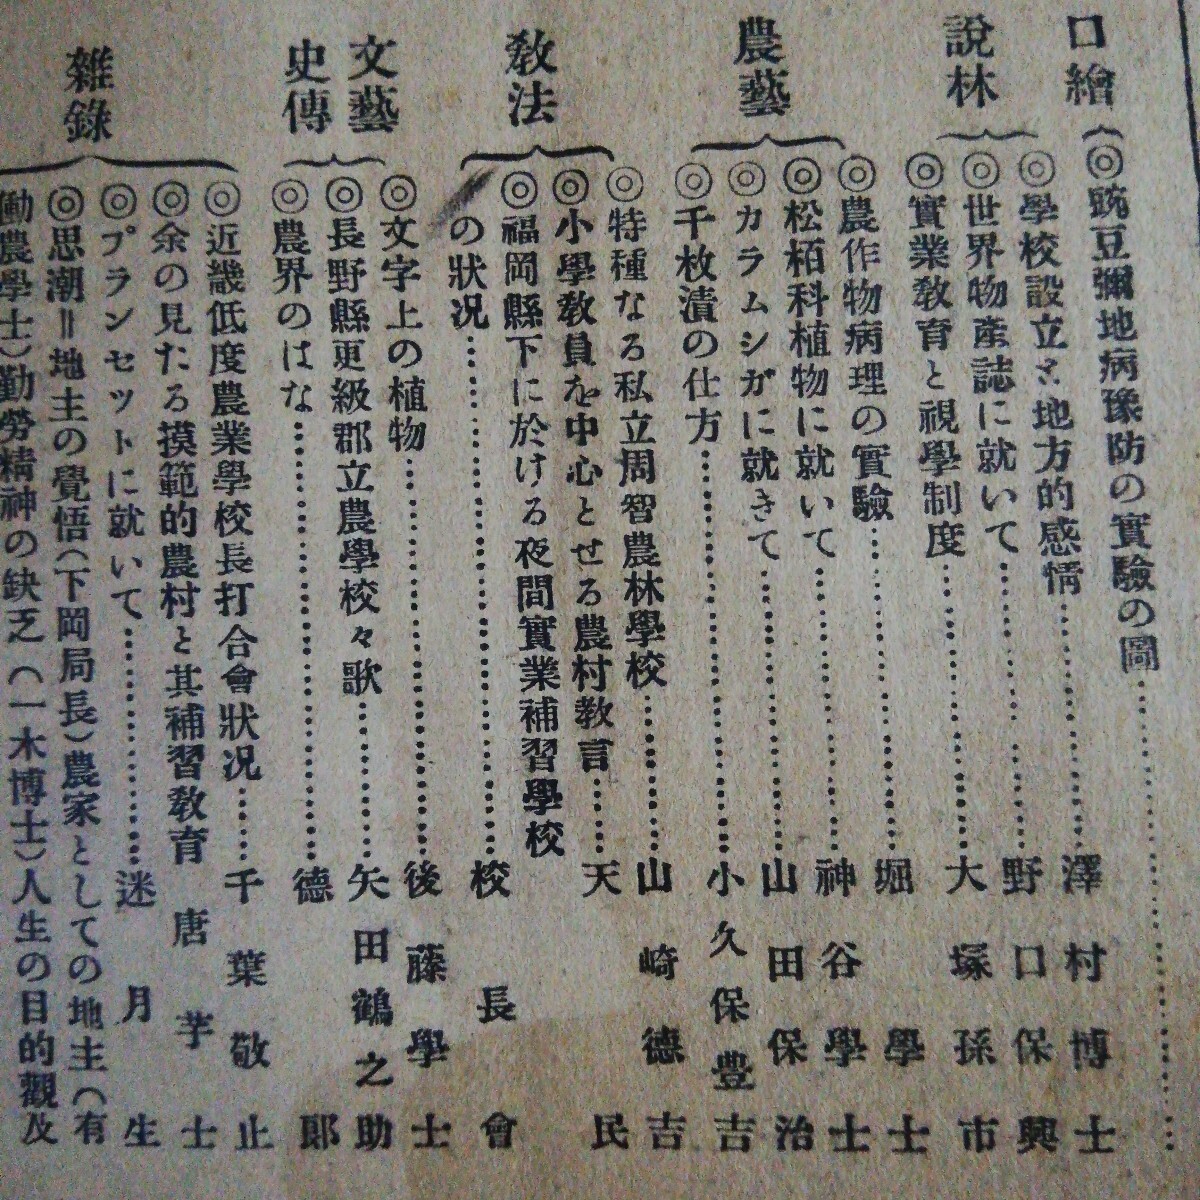 口繪
◎豌豆彌地病豫防の實驗の圖
說林
◎學校設立と地方的感情……澤村博士
◎世界物產誌に就いて……野口保興
◎實業敎育と視學制度……大塚孫市
農藝
◎農作物病理の實驗……堀學士
◎松栢科植物に就いて……神谷學士
◎カラムシガに就きて……山田保治
◎千枚漬の仕方……小久保豊吉
敎法
◎特種なる私立周智農林學校……山崎德吉
◎小學敎員を中心とせる農村教言……天民
◎福岡縣下に於ける夜間實業補習學校
の狀况……校長會
文藝
史傳
◎文字上の植物……後藤學士
◎長野縣更級郡立農學校々歌……矢田鶴之助
◎農界のはな……德郞
雜錄
◎近畿低度農業學校長打合會狀况……千葉敬止
◎余の見たる摸範的農村と其補習敎育 唐芋士
◎プランセットに就いて……迷月生
◎思潮＝地主の覺悟（下岡局長）農家としての地主（有
働農學士）勤勞精神の缺乏（一木博士）人生の目的觀及